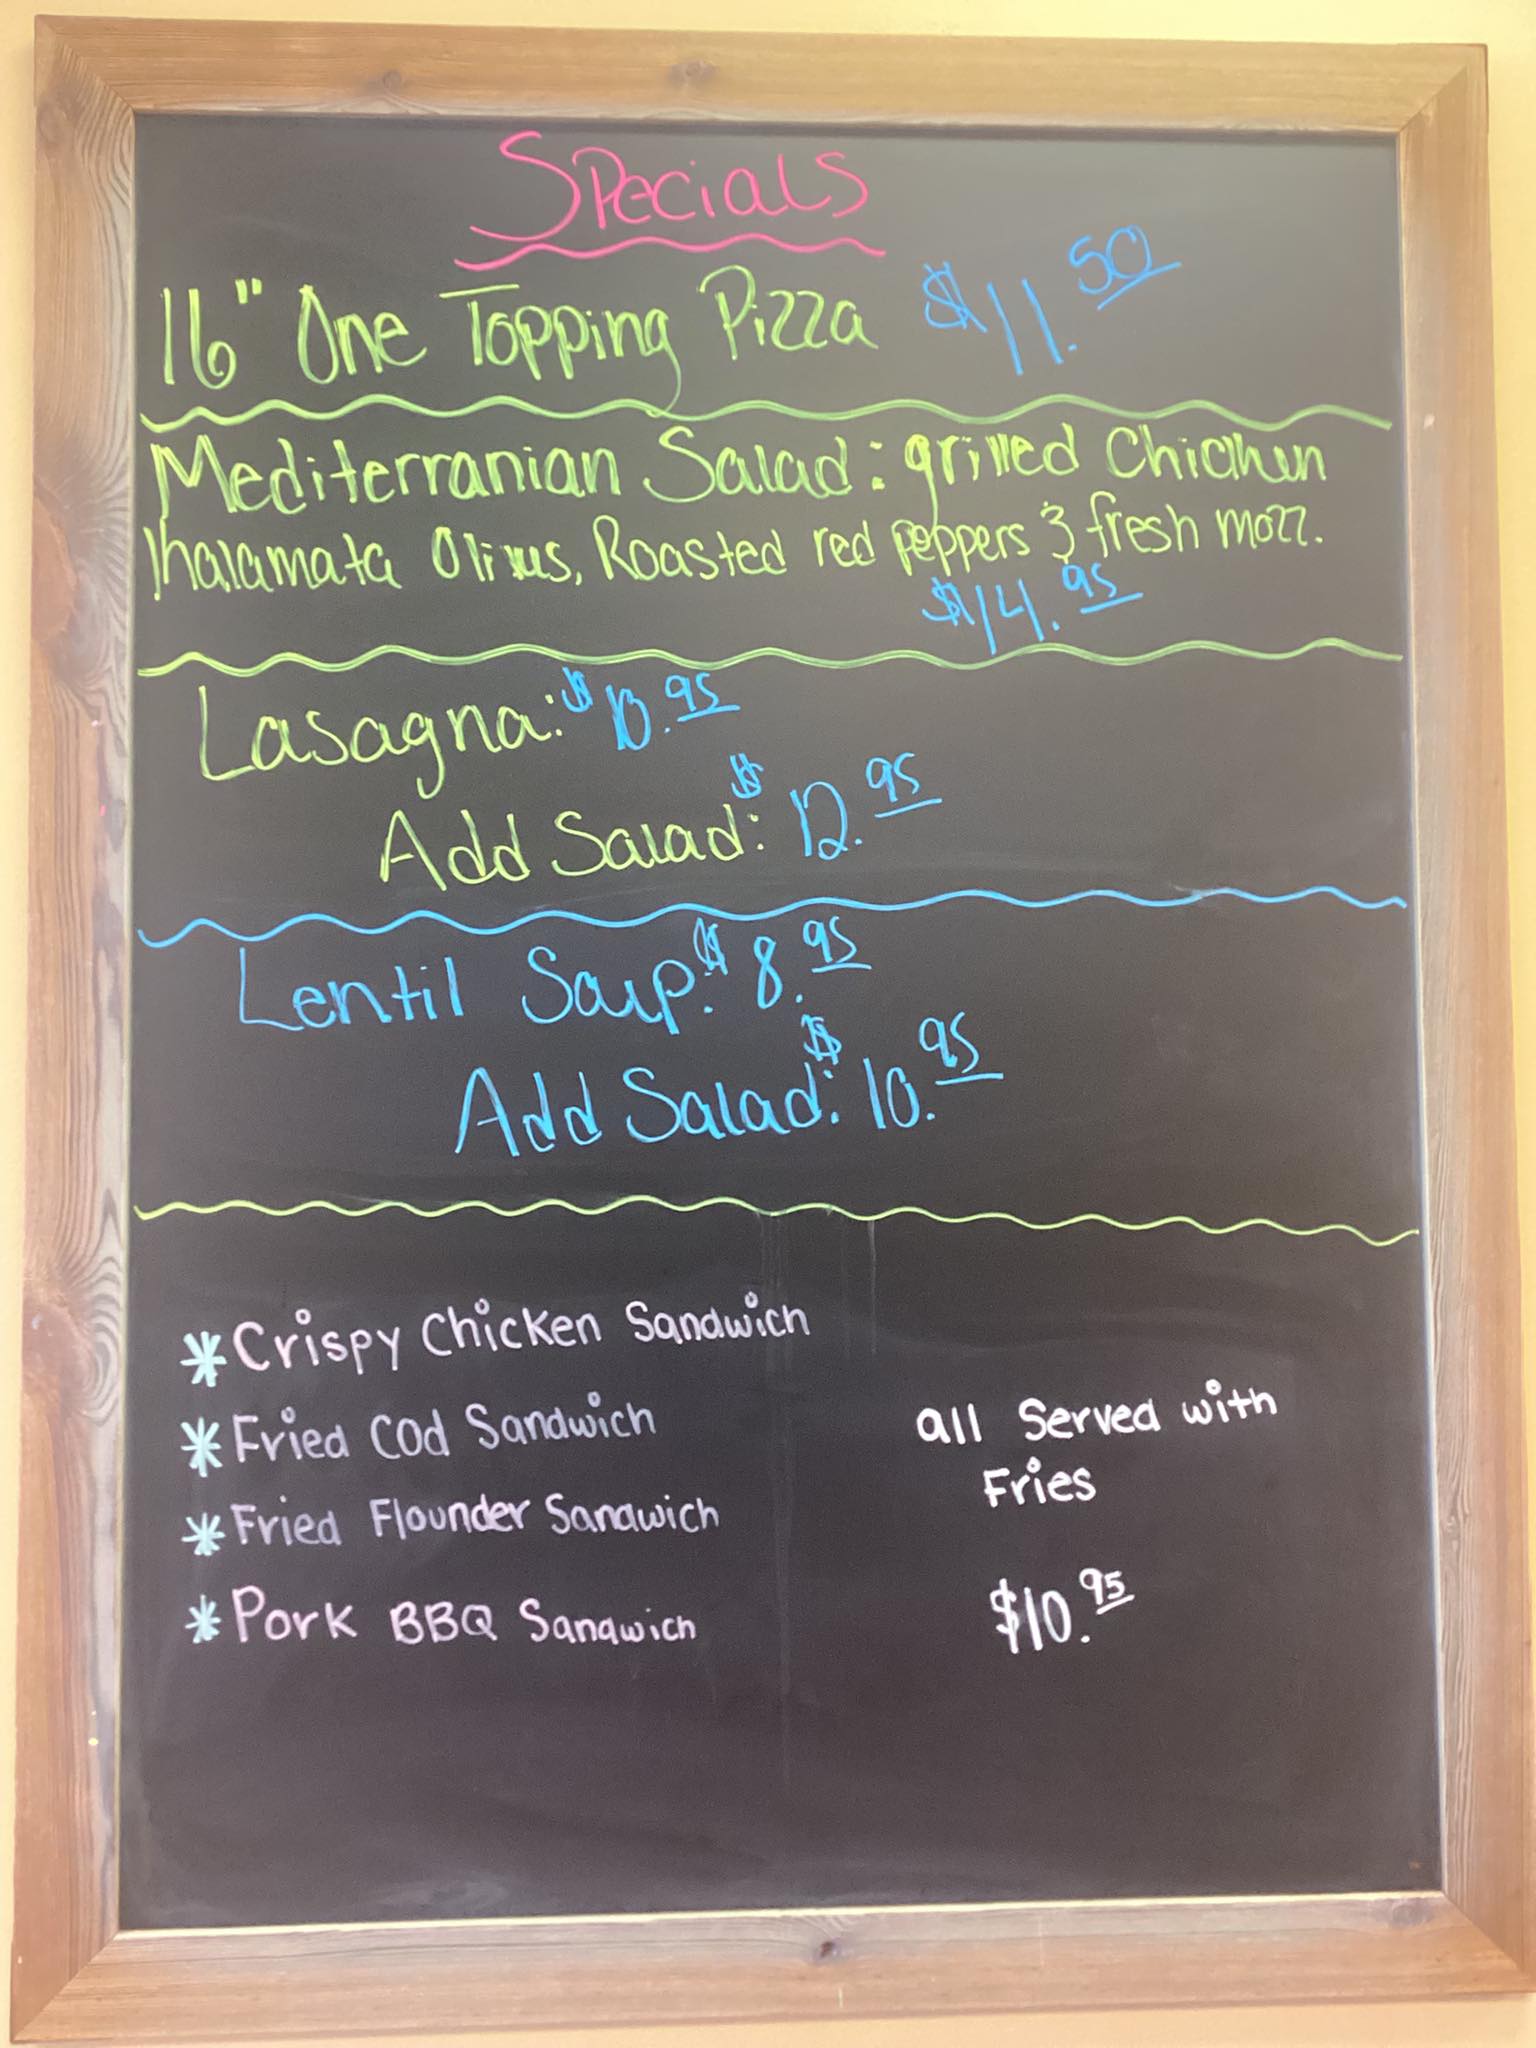 Specials
16" One Topping Pizza $11.50
Mediterranian Salad: grilled Chicken
Kalamata Olives, Roasted red peppers & fresh mozz.
$14.95
Lasagna: $10.95
Add Salad: $12.95
Lentil Soup: $8.95
Add Salad: $10.95
* Crispy Chicken Sandwich
* Fried Cod Sandwich
all Served with
Fries
* Fried Flounder Sandwich
* Pork BBQ Sandwich
$10.95